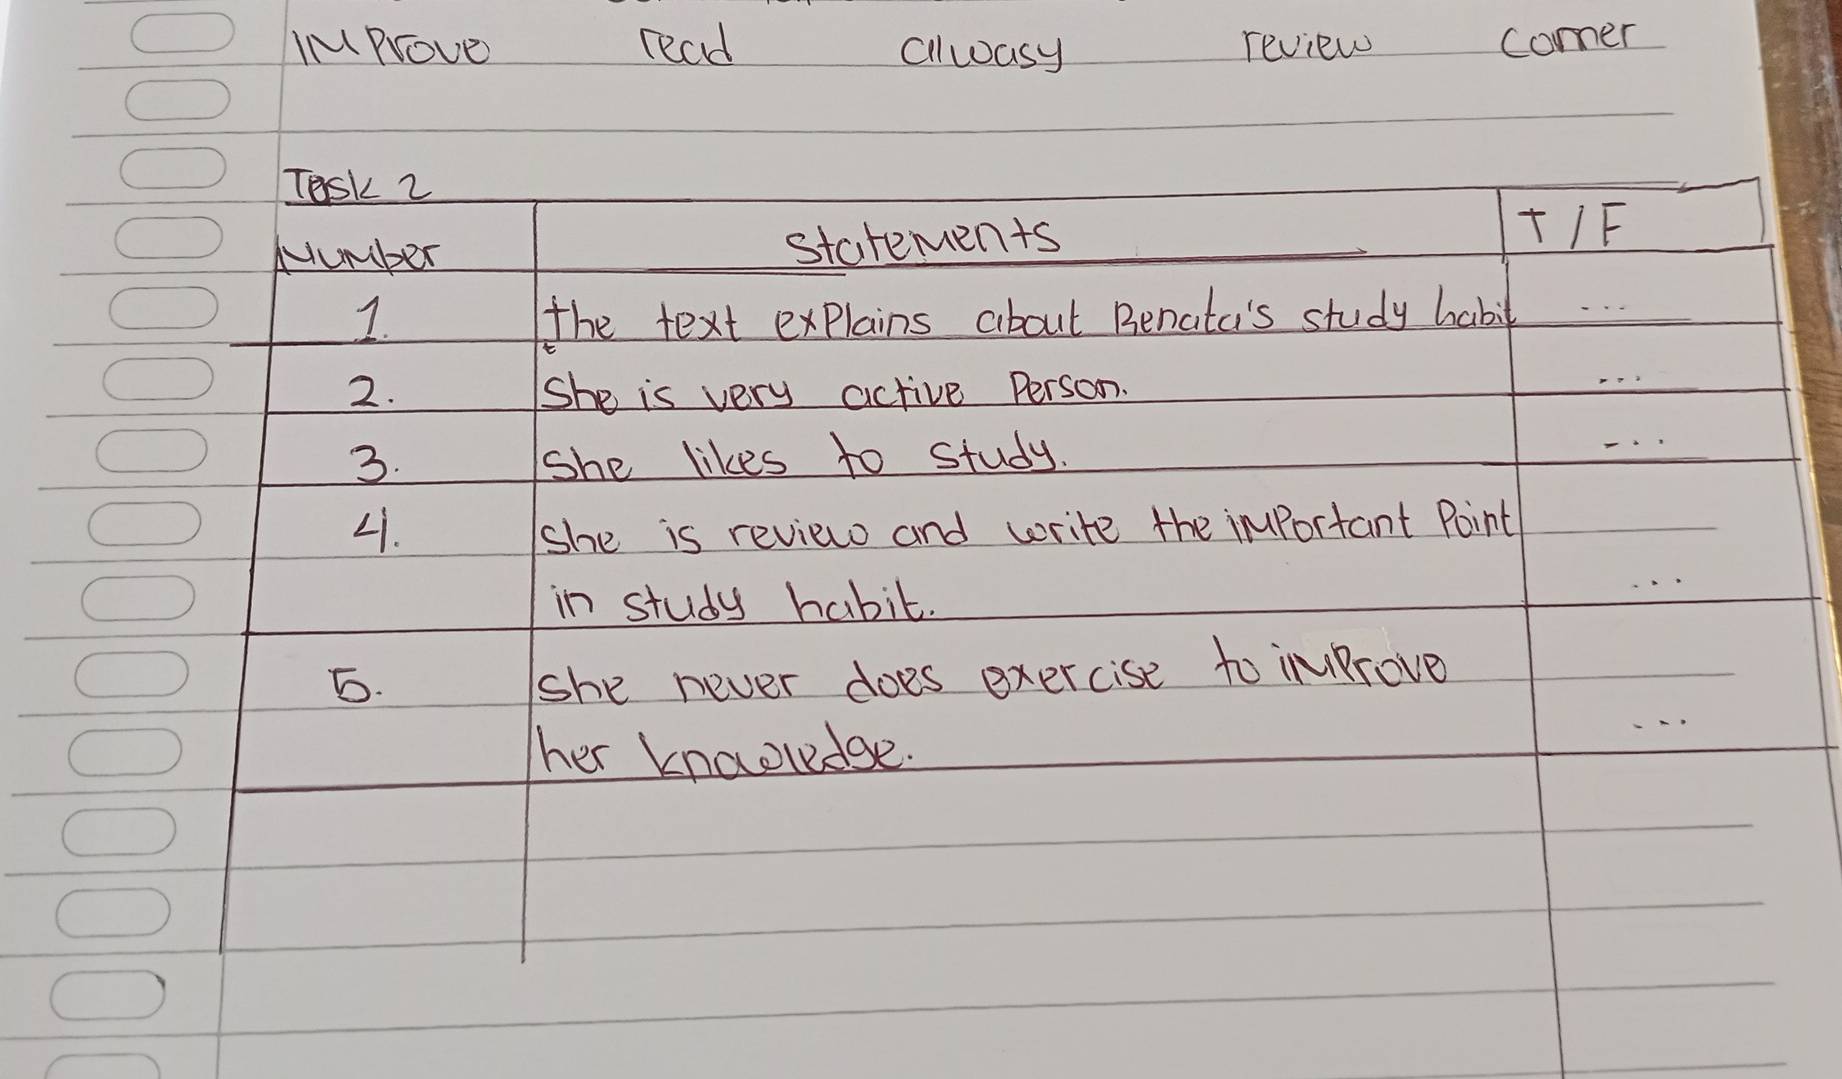 improve read allwasy review corner
Task 2
Number statements T/F
1. the text explains about Benata's study habit ...
2. she is very active Person. ...
3. she likes to study. ...
4. she is review and write the important Point
in study habit. ...
5. she never does exercise to improve
her knowledge. ...